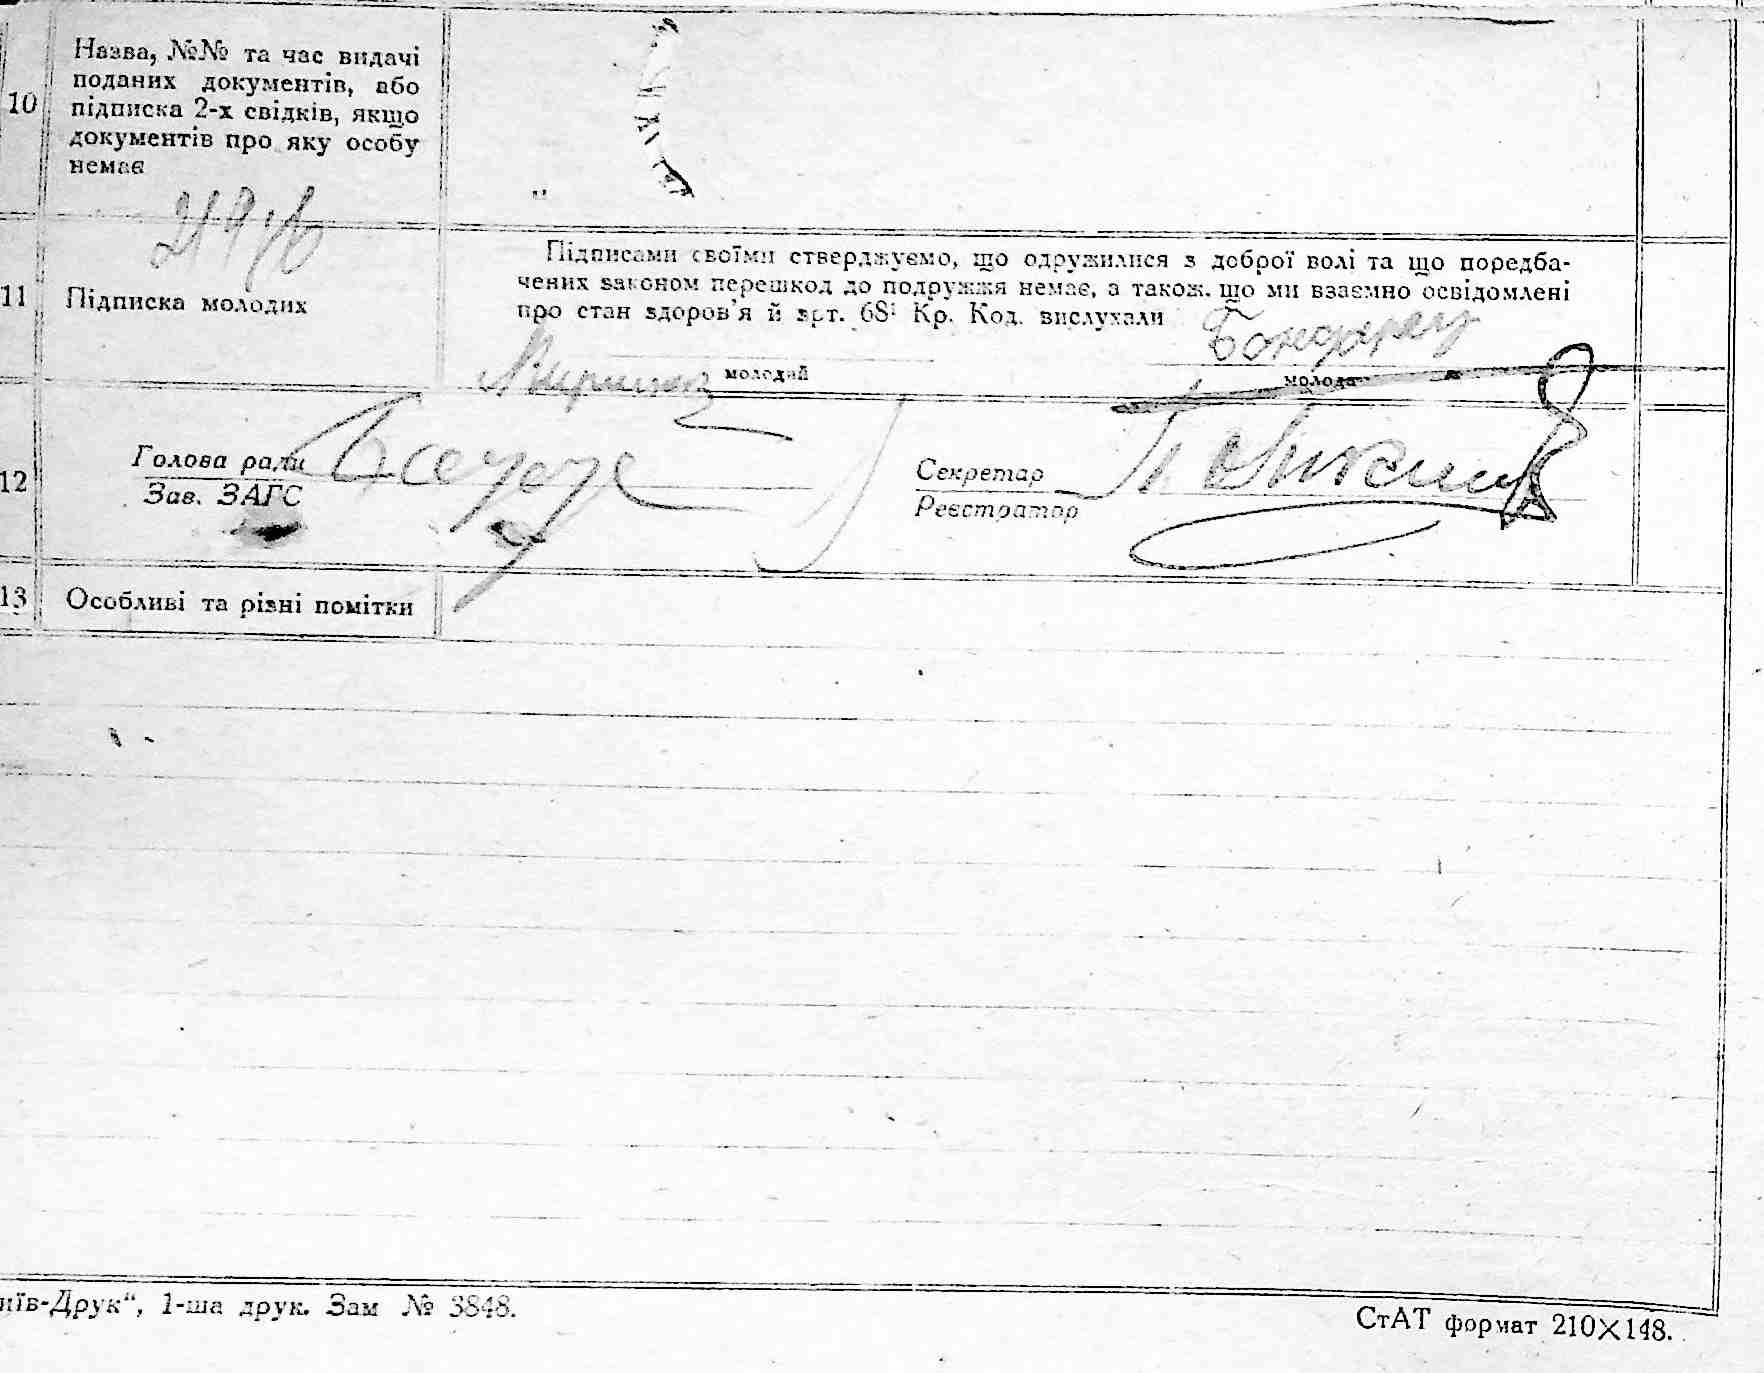 10
Назва, №№ та час видачі
поданих документів, або
підписка 2-х свідків, якщо
документів про яку особу
немає
11
Підписка молодих
Підписами своїми стверджуємо, що одружилися з доброї волі та що поредба-
чених законом перешкод до подружжя немає, а також, що ми взаємно освідомлені
про стан здоров'я й арт. 68¹ Кр. Код. вислухали
Бондарец
молодий
молода
12
Голова ради
Зав. ЗАГС
Секретар
Реєстратор
13
Особливі та різні помітки
иїв-Друк“, 1-ша друк. Зам № 3848.
СтАТ формат 210×148.